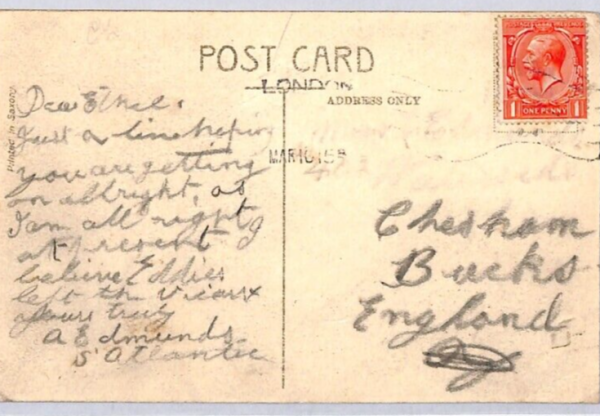 POST CARD
LONDON
ADDRESS ONLY
MAR 10 15
Printed in Saxony
1 1
ONE PENNY
Dear Ethel.
Just a line hoping
you are getting
on allright, as
I am all right
at present I
believe Eddies
left the
yours truly
A Edmunds
S. Atlantic
Chesham
Bucks
England